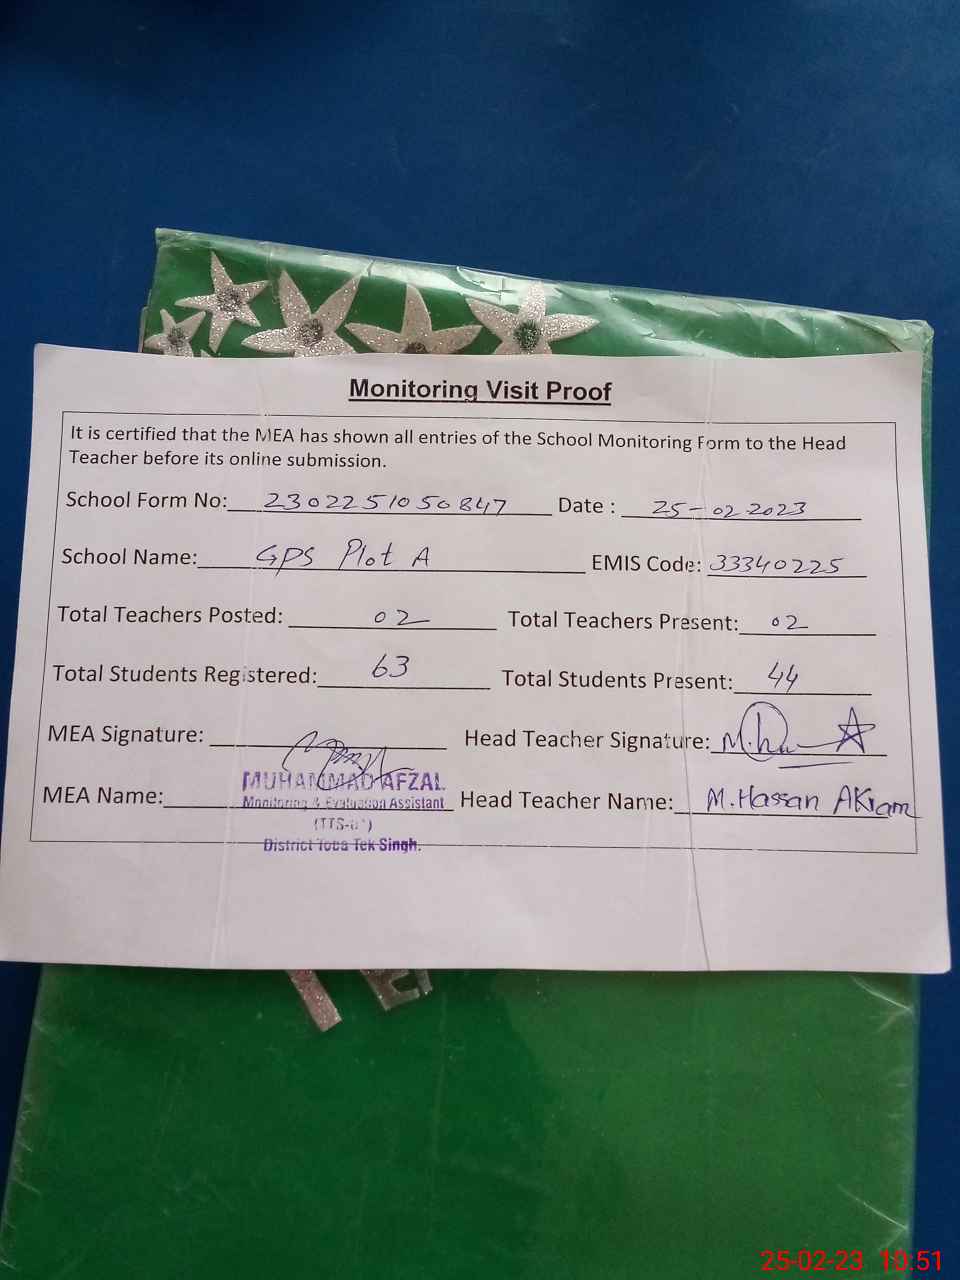 Monitoring Visit Proof
It is certified that the MEA has shown all entries of the School Monitoring Form to the Head
Teacher before its online submission.
School Form No: 2302251050847 Date : 25-02-2023
School Name: GPS Plot A EMIS Code: 33340225
Total Teachers Posted: 02 Total Teachers Present: 02
Total Students Registered: 63 Total Students Present: 44
MEA Signature: Head Teacher Signature:
MEA Name: MUHAMMAD AFZAL Head Teacher Name: M.Hassan AKram
Monitoring & Evaluation Assistant
District Toba Tek Singh.
25-02-23 10:51